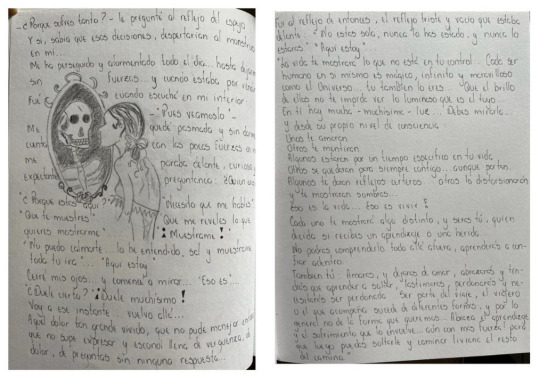 -¿Porque sufres tanto?- le pregunté al reflejo del espejo
Y si, sabia que esas decisiones, despertarían al monstruo
en mi...
Me ha perseguido y atormentado todo el día... hasta dejarme
sin fuerzas... y cuando estaba por
Fui cuando escuché en mi interior
-"Pues veamoslo"-
Me quedé pasmada y sin
cuenta con las pocas fuerzas
me paraba delante, curiosa y
expectante preguntance: ¿Quien
"¿Porque estas aquí?" "Necesito que me hables"
"Que te muestres" Que me reveles lo que
quieres mostrarme" "¡Muestrame!"
"No puedo calmarte... lo he entendido, sal y muestrame
toda tu ira"... "Aquí estoy"
Cerré mis ojos... y comencé a mirar... "Eso es"....
"¿Duele cierto?" "¡Duele muchísimo!"
Voy a ese instante vuelvo allí...
Aquel dolor tan grande vivido, que no pude manejar
que no supe expresar y escondí llena de vergüenza, de
dolor, de preguntas sin ninguna respuesta...
Fui al reflejo de entonces, el reflejo triste y vacio que estaba
delante: "No estas sola, nunca lo has estado, y nunca lo
estarás" "Aquí estoy"
"La vida te mostrará lo que no está en tu control... Cada ser
humano en si mismo es mágico, infinito y maravilloso
como el Universo... tu también lo eres... Que el brillo
de ellos no te impida ver lo luminoso que es el tuyo...
En ti hay mucha - muchisima - luz... Debes mirarlo...
y desde su propio nivel de consciencia:
Unos te amaran
Otros te mentiran
Algunos estaran por un tiempo especifico en tu vida
Otros se quedaran para siempre contigo... aunque partan...
Algunos te daran reflejos certeros... otros lo distorsionaran
y te mostraran sombras...
Eso es la vida... Eso es vivir!
Cada uno te mostrará algo distinto, y serás tú, quien
decida si recibes un aprendizaje o una herida...
No podras comprenderlo todo allí afuera, aprenderás a sen-
tir adentro.
También tú: Amarás, y dejaras de amar, abrazarás y ten-
drás que aprender a soltar, lastimarás, perdonarás y ne-
cesitarás ser perdonada. Ser parte del viaje, el viajero
o el que acompaña sucede de diferentes formas, y por lo
general no de la forma que queremos... Abraza el aprendizaje
y el sufrimiento que lo envuelve... aún con mas fuerza! para
que luego puedas soltarle y caminar liviana el resto
del camino."